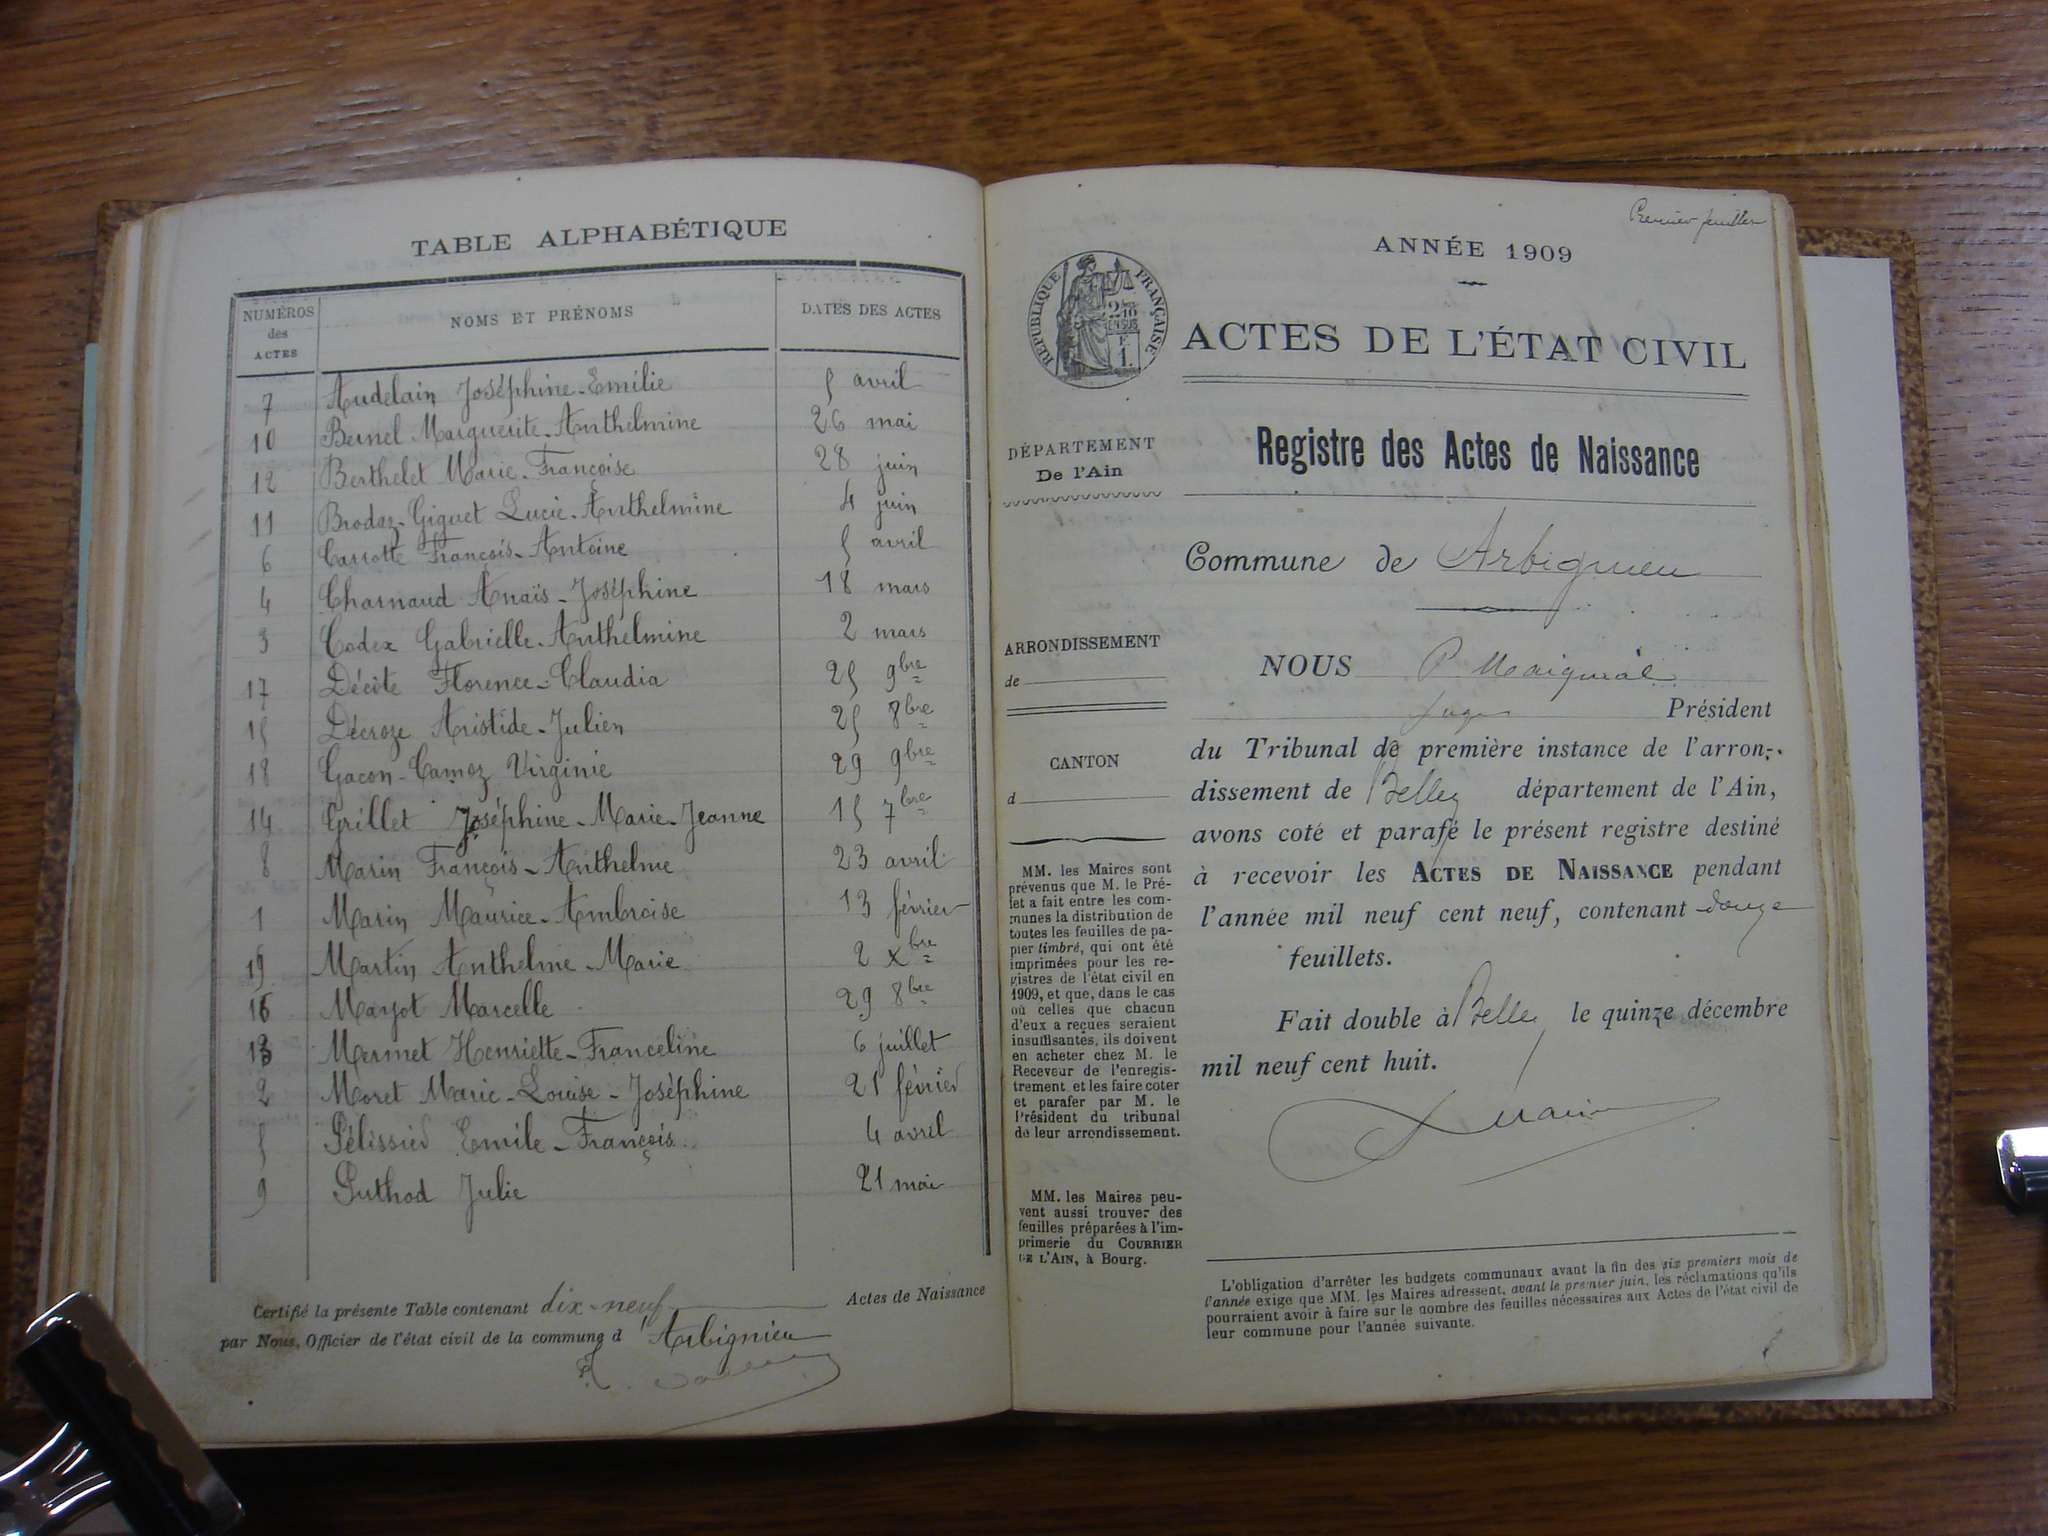 TABLE ALPHABÉTIQUE
NUMÉROS des ACTES NOMS ET PRÉNOMS DATES DES ACTES
7 Audelain Joséphine-Emilie 5 avril
10 Bernel Marguerite-Anthelmine 26 mai
12 Berthelet Marie-Françoise 28 juin
11 Brodaz-Giguet Lucie-Anthelmine 4 juin
6 Carrotte François-Antoine 5 avril
4 Charnaud Anaïs-Joséphine 18 mars
3 Codex Gabrielle-Anthelmine 2 mars
17 Décôte Florence-Claudia 25 9bre
15 Décroze Aristide-Julien 25 8bre
18 Gacon-Camoz Virginie 29 9bre
14 Grillet Joséphine-Marie-Jeanne 15 7bre
8 Marin François-Anthelme 23 avril
1 Marin Maurice-Ambroise 13 février
19 Martin Anthelme-Marie 2 Xbre
16 Mayot Marcelle 29 8bre
13 Mermet Henriette-Franceline 6 juillet
2 Moret Marie-Louise-Joséphine 21 février
5 Pélissier Emile-François 4 avril
9 Puthod Julie 21 mai
Certifié la présente Table contenant dix-neuf Actes de Naissance
par Nous, Officier de l'état civil de la commune d'Arbignieu
Premier feuillet
ANNÉE 1909
RÉPUBLIQUE FRANÇAISE
ACTES DE L'ÉTAT CIVIL
DÉPARTEMENT
De l'Ain
Registre des Actes de Naissance
Commune de Arbignieu
ARRONDISSEMENT
de
CANTON
d
MM. les Maires sont
prévenus que M. le Pré-
fet a fait entre les com-
munes la distribution de
toutes les feuilles de pa-
pier timbré, qui ont été
imprimées pour les re-
gistres de l'état civil en
1909, et que, dans le cas
où celles que chacun
d'eux a reçues seraient
insuffisantes, ils doivent
en acheter chez M. le
Receveur de l'enregis-
trement et les faire coter
et parafer par M. le
Président du tribunal
de leur arrondissement.
MM. les Maires peu-
vent aussi trouver des
feuilles préparées à l'im-
primerie du COURRIER
DE L'AIN, à Bourg.
NOUS P.
Juge Président
du Tribunal de première instance de l'arron-
dissement de Belley département de l'Ain,
avons coté et parafé le présent registre destiné
à recevoir les ACTES DE NAISSANCE pendant
l'année mil neuf cent neuf, contenant douze
feuillets.
Fait double à Belley le quinze décembre
mil neuf cent huit.
L'obligation d'arrêter les budgets communaux avant la fin des six premiers mois de
l'année exige que MM. les Maires adressent, avant le premier juin, les réclamations qu'ils
pourraient avoir à faire sur le nombre des feuilles nécessaires aux Actes de l'état civil de
leur commune pour l'année suivante.